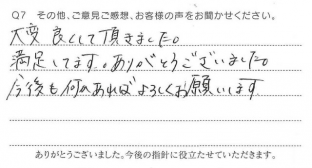 Q7 その他、ご意見ご感想、お客様の声をお聞かせください。
大変良くして頂きました。
満足してます。ありがとうございました。
今後も何かあればよろしくお願いします
ありがとうございました。今後の指針に役立たせていただきます。